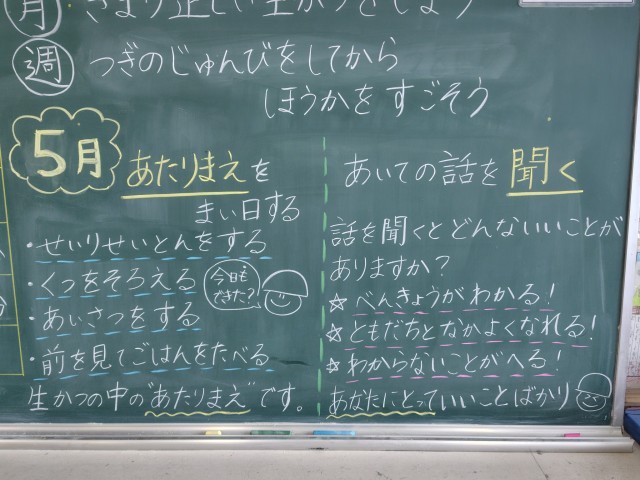 月 きまり正しい生かつをしよう
週 つぎのじゅんびをしてから
ほうかをすごそう
5月
あたりまえを
まい日する
・せいりせいとんをする
・くつをそろえる
・あいさつをする
・前を見てごはんをたべる
今日も
できた?
生かつの中の"あたりまえ"です。
あいての話を聞く
話を聞くとどんないいことが
ありますか?
☆べんきょうがわかる!
☆ともだちとなかよくなれる!
☆わからないことがへる!
あなたにとっていいことばかり